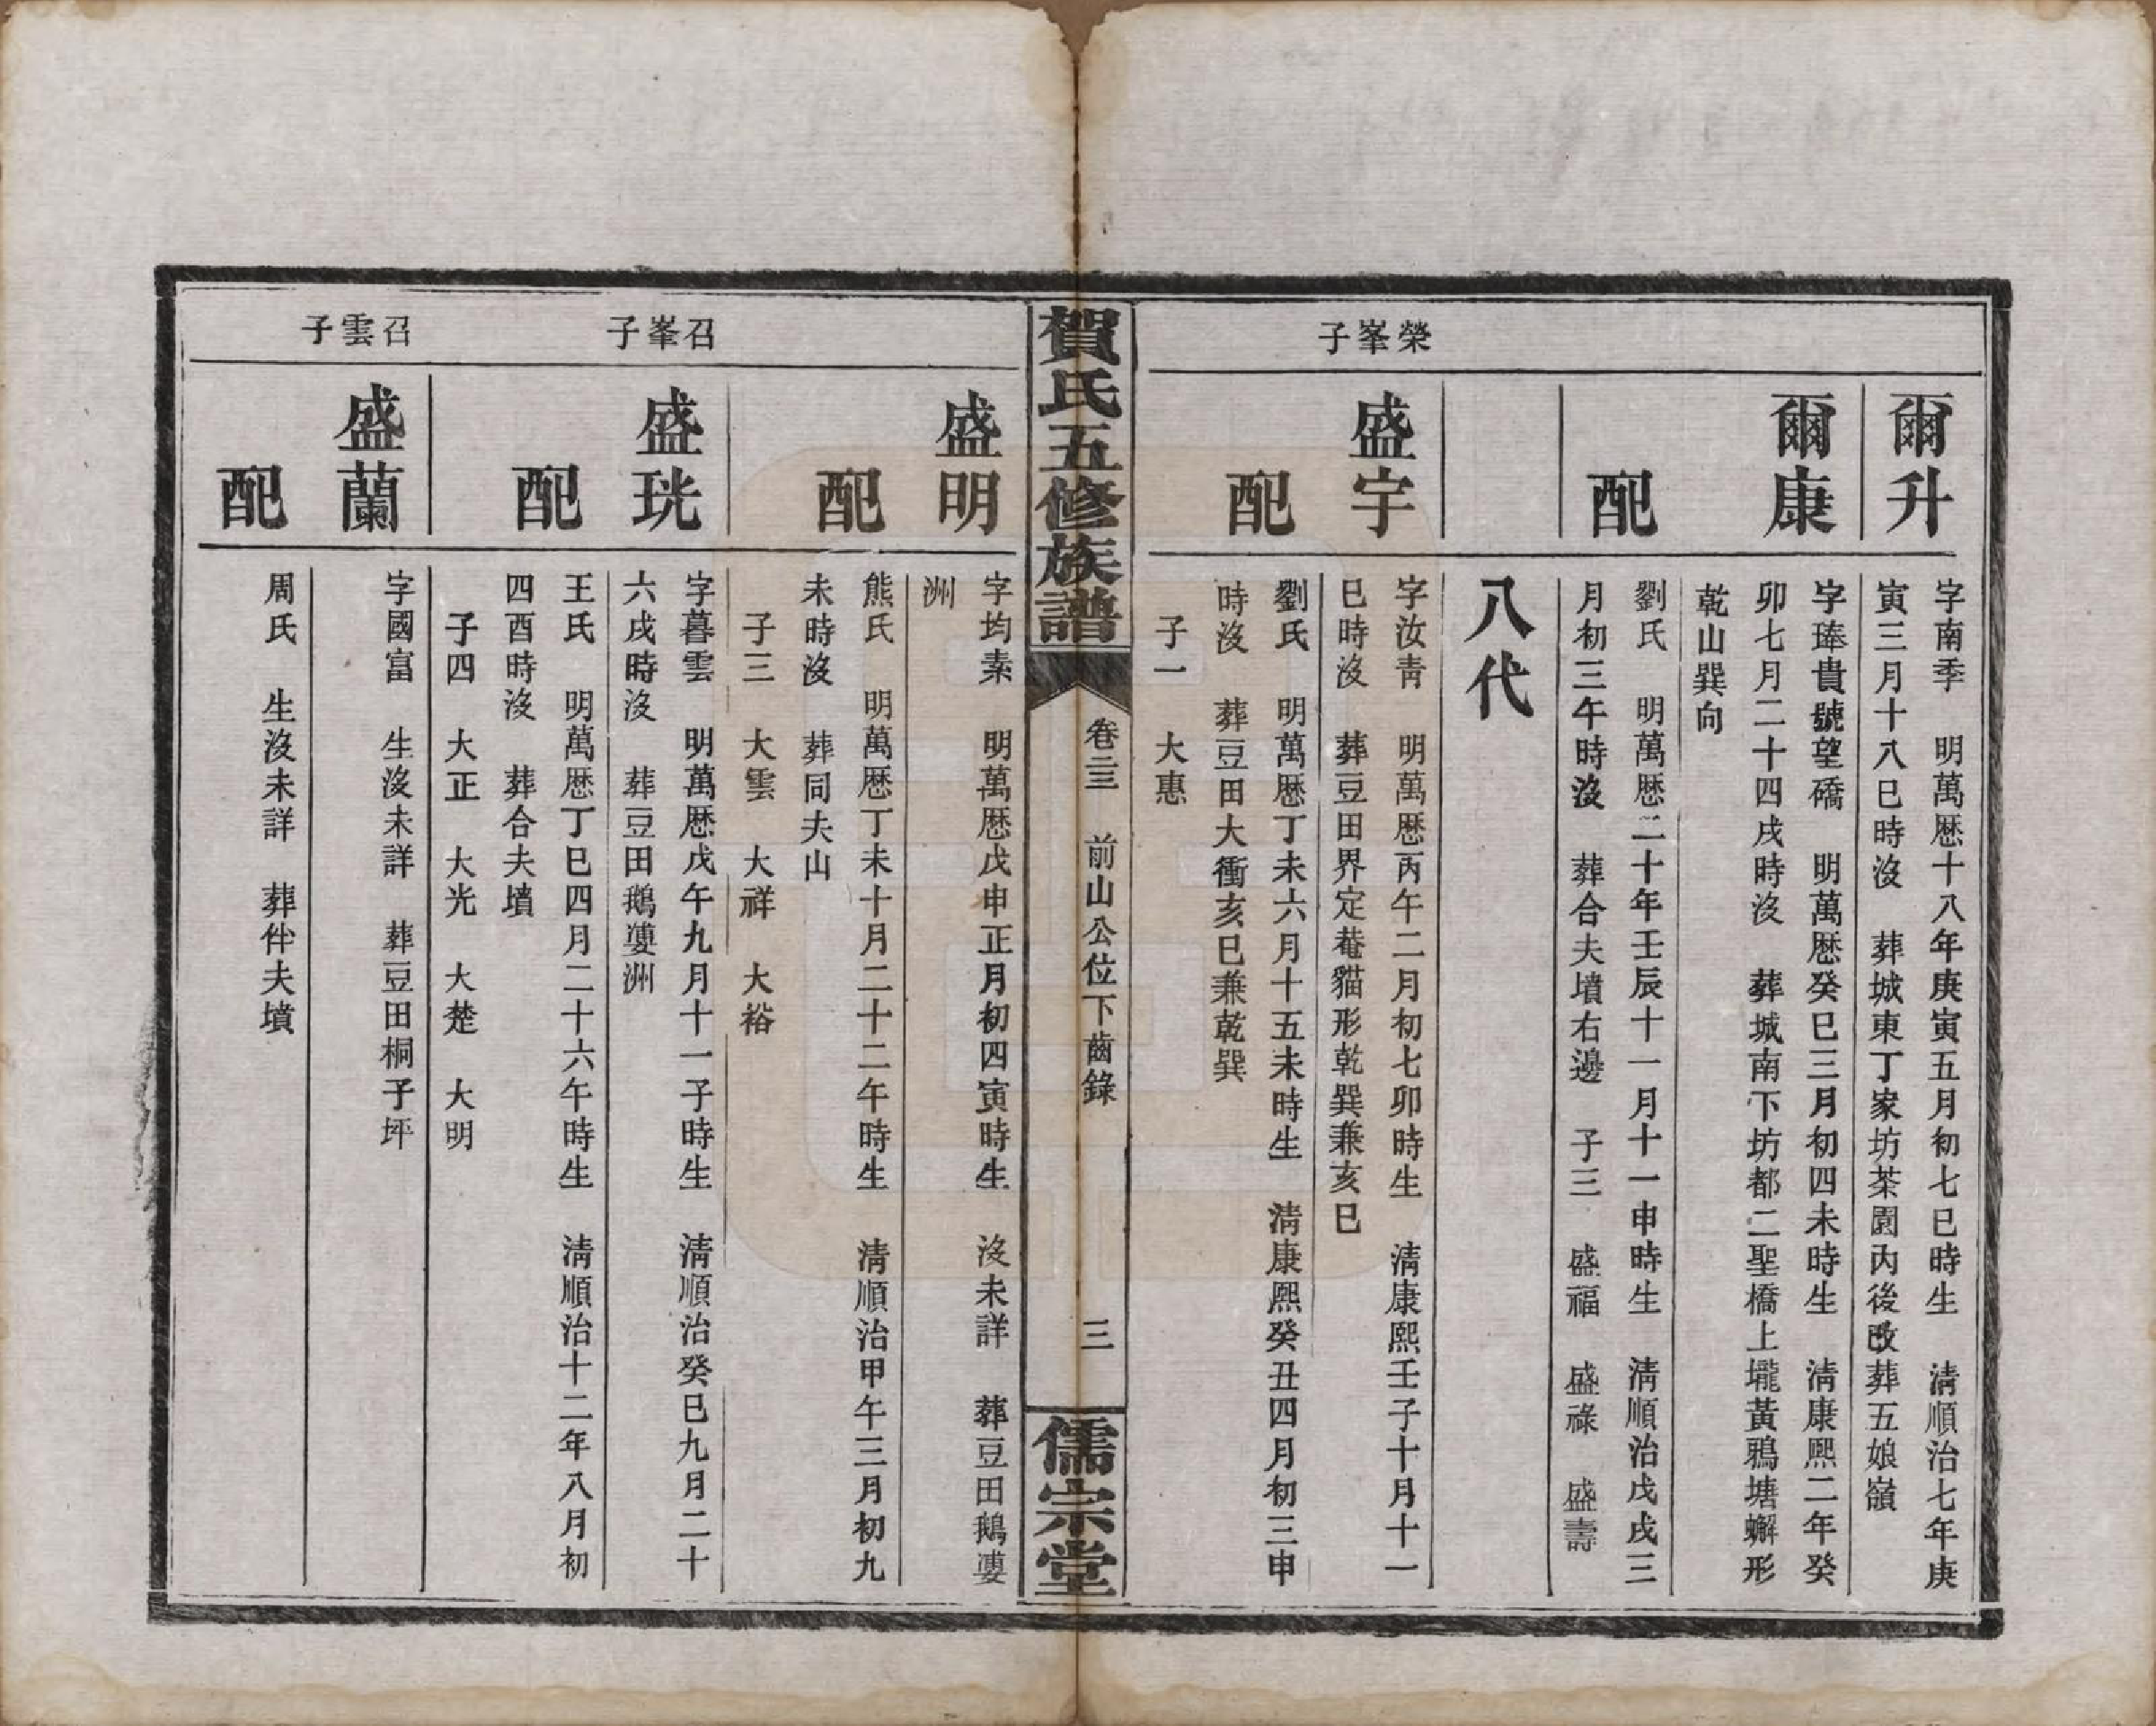 爾升
字南季　明萬歷十八年庚寅五月初七巳時生　清順治七年庚
寅三月十八巳時沒　葬城東丁家坊茶園內後改葬五娘嶺
爾康
字琫貴號望礄　明萬歷癸巳三月初四未時生　清康熙二年癸
卯七月二十四戌時沒　葬城南下坊都二聖橋上壠黃鴉塘蠏形
乾山巽向
配
劉氏　明萬歷二十年壬辰十一月十一申時生　清順治戊戌三
月初三午時沒　葬合夫墳右邊　子三　盛福　盛祿　盛壽
八代
榮峯子
盛宇
字汝靑　明萬歷丙午二月初七卯時生　清康熙壬子十月十一
巳時沒　葬豆田界定菴貓形乾巽兼亥巳
配
劉氏　明萬歷丁未六月十五未時生　清康熙癸丑四月初三申
時沒　葬豆田大衝亥巳兼乾巽
子一　大惠
賀氏五修族譜
卷二三　前山公位下齒錄
三
儒宗堂
盛明
字均素　明萬歷戊申正月初四寅時生　沒未詳　葬豆田鵝𡜦
洲
配
熊氏　明萬歷丁未十月二十二午時生　清順治甲午三月初九
未時沒　葬同夫山
子三　大雲　大祥　大裕
召峯子
盛珖
字暮雲　明萬歷戊午九月十一子時生　清順治癸巳九月二十
六戌時沒　葬豆田鵝𡜦洲
配
王氏　明萬歷丁巳四月二十六午時生　清順治十二年八月初
四酉時沒　葬合夫墳
子四　大正　大光　大楚　大明
召雲子
盛蘭
字國富　生沒未詳　葬豆田桐子坪
配
周氏　生沒未詳　葬伴夫墳